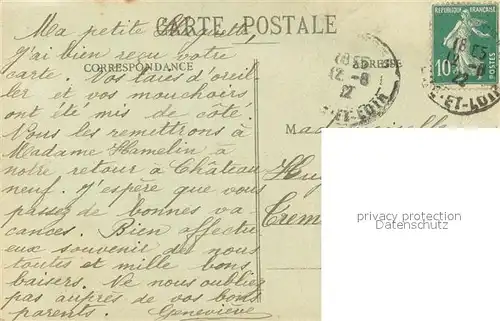 CARTE POSTALE
CORRESPONDANCE
ADRESSE
Ma petite
J'ai bien reçu votre
carte. Vos taies d'oreil
ler et vos mouchoirs
ont été mis de côté
Nous les remettrons à
Madame Hamelin à
notre retour à Château
neuf. J'espère que vous
passez de bonnes va
cances. Bien affectu
eux souvenir de nous
toutes et mille bons
baisers. Ne nous oubliez
pas auprès de vos bons
parents. Geneviève
Mad
Hu
Crém
REPUBLIQUE FRANÇAISE
10
POSTES
18 E5
12 -8
22
ET-LOIR
18 E5
-8
22
ET-LOIR
privacy protection
Datenschutz